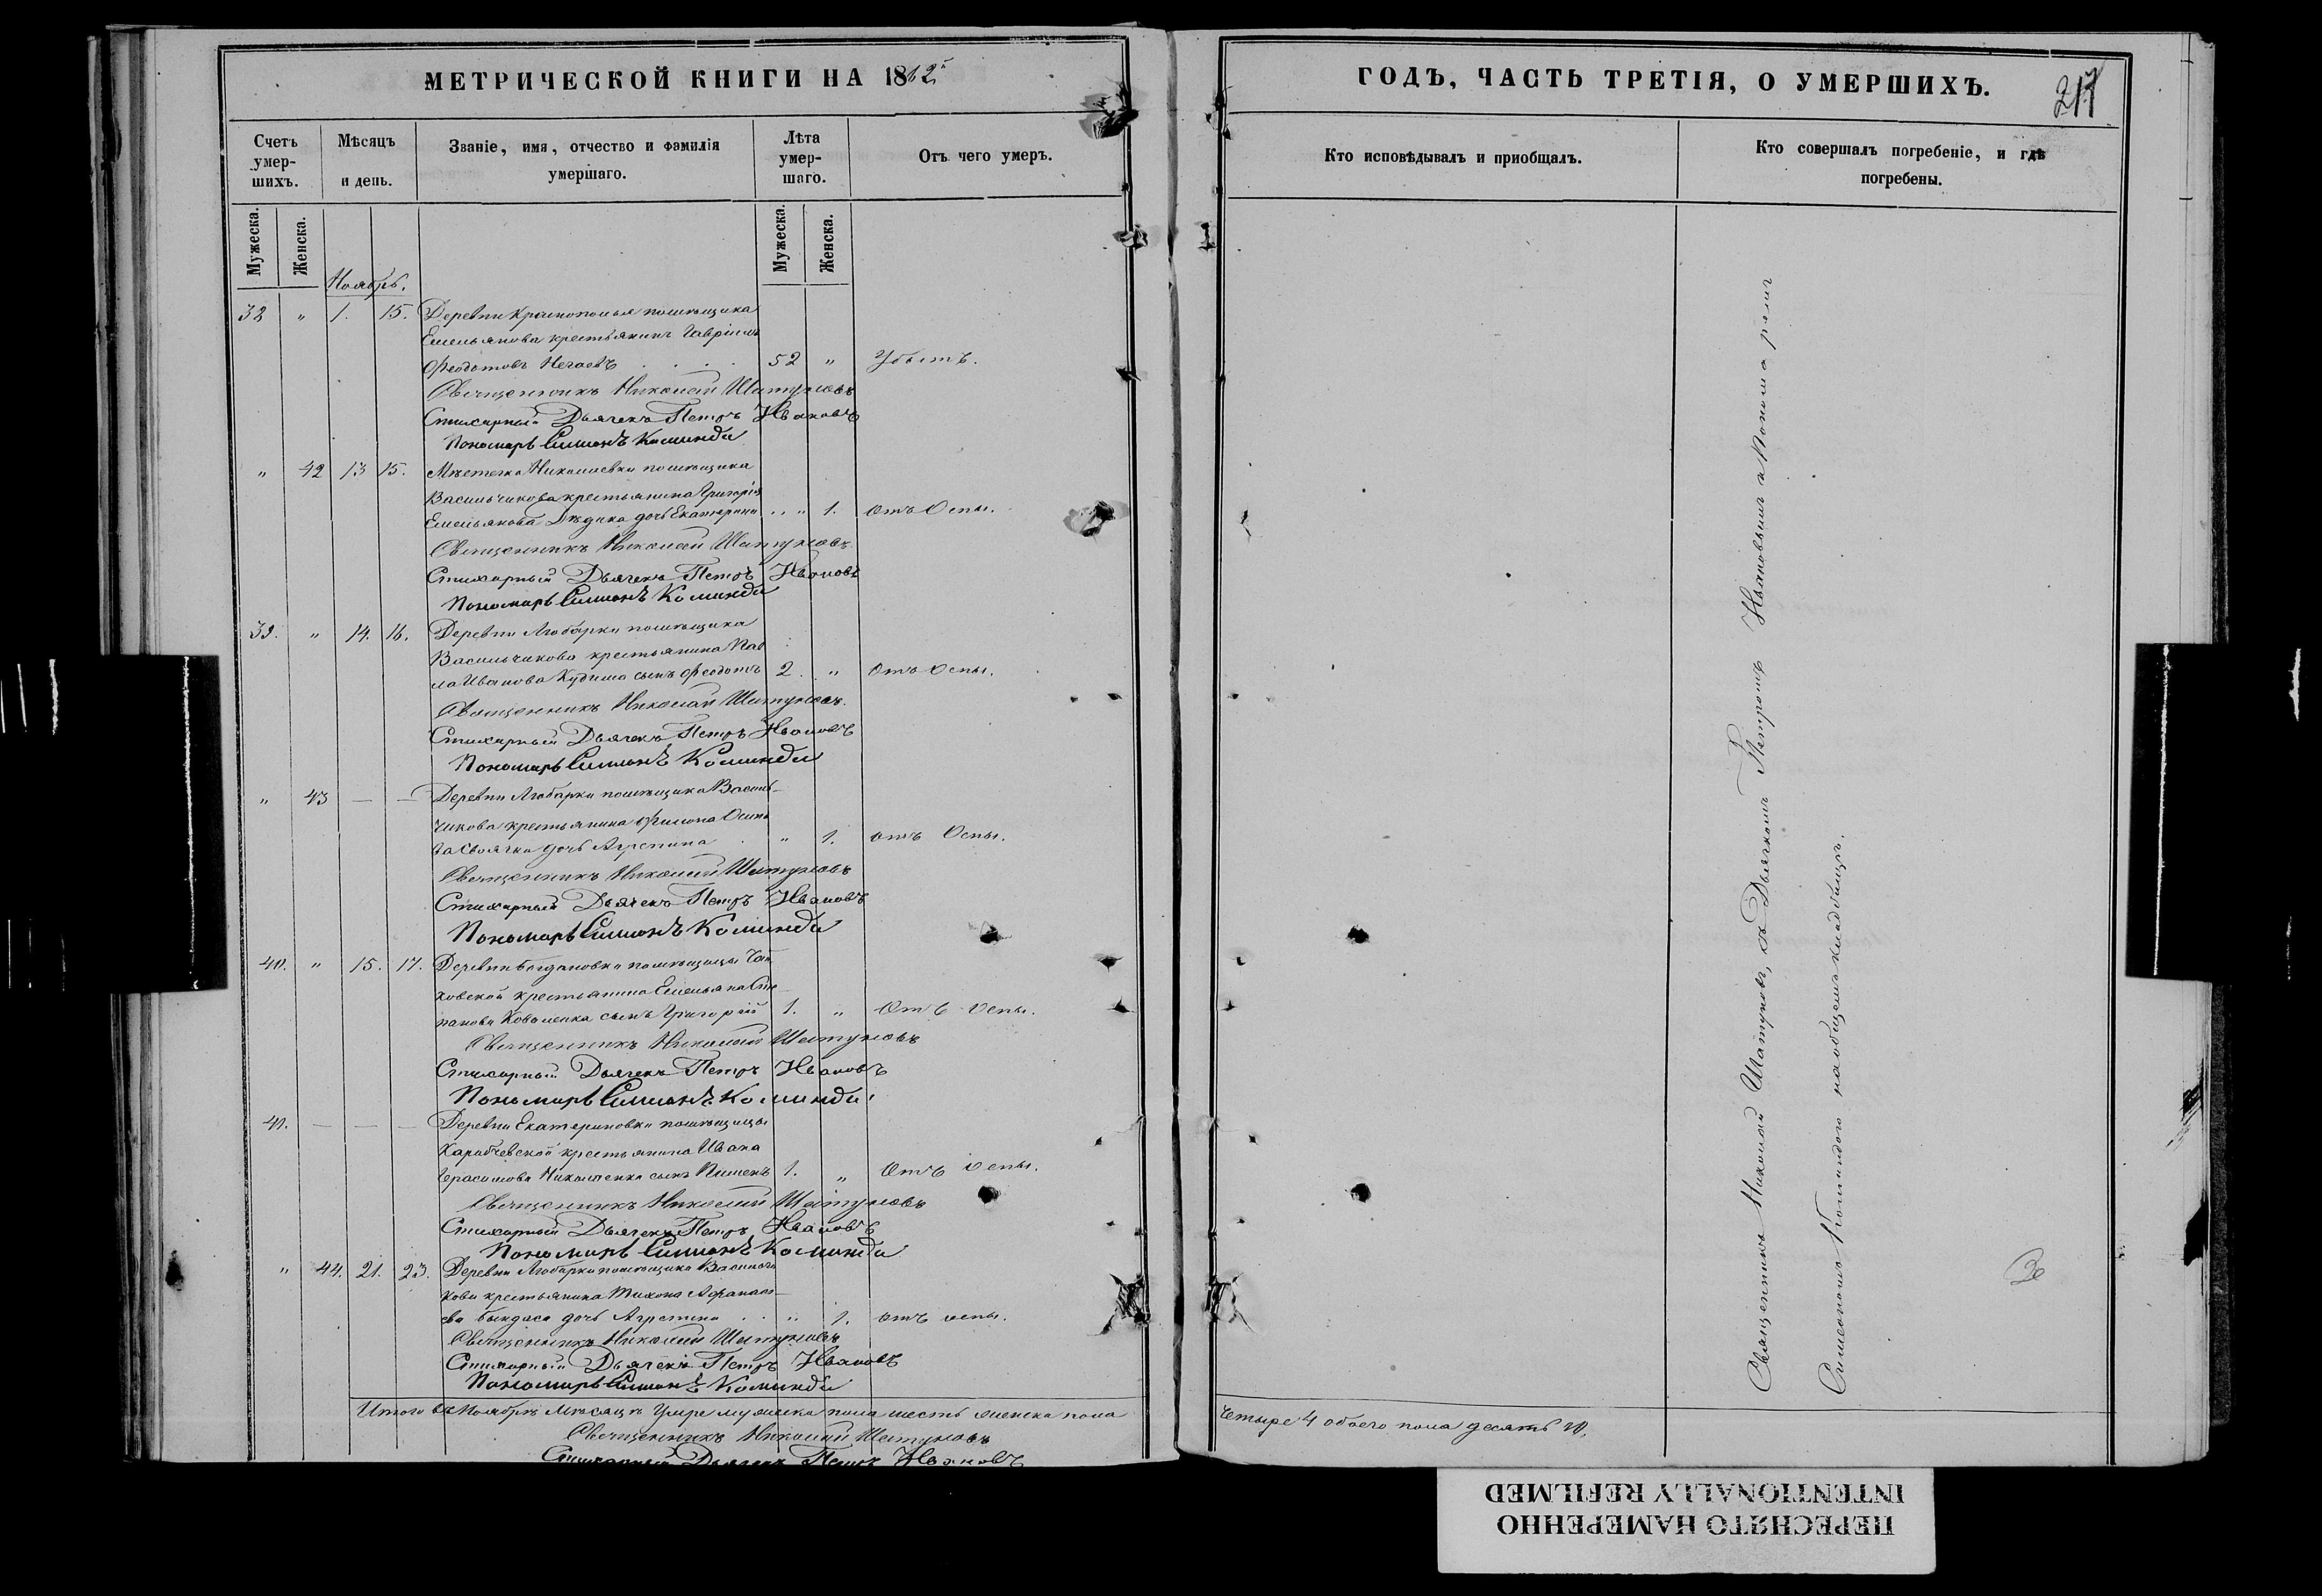 МЕТРИЧЕСКОЙ КНИГИ НА 1862й
Счетъ умер-шихъ.
Мѣсяцъ и день.
Званіе, имя, отчество и фамилія умершаго.
Лѣта умер-шаго.
Отъ чего умеръ.
Мужеска. Женска. Мужеска. Женска.
Ноябрь.
32 " 1. 15. Деревни помѣщика
Емельянова крестьянинъ Гавріилъ
Феодотовъ 52 " Убитъ.
Священникъ Николай Шатуновъ
Стихарный Дьячекъ Петръ Ивановъ
Пономарь Симеонъ Коминда
" 42 13 15. Мѣстечка Николаевки помѣщика
Васильчикова крестьянина Григорія
Емельянова Дѣдика дочь Екатерина " " 1. отъ Оспы.
Священникъ Николай Шатуновъ
Стихарный Дьячекъ Петръ Ивановъ
Пономарь Симеонъ Коминда
39. " 14. 16. Деревни Любарки помѣщика
Васильчикова крестьянина Пав
ла Иванова сынъ Феодотъ 2. " Отъ Оспы.
Священникъ Николай Шатуновъ.
Стихарный Дьячекъ Петръ Ивановъ
Пономарь Симеонъ Коминда
" 43 — — Деревни Любарки помѣщика Василь-
чикова крестьянина Филипа Осипо
ва дочь Агрепина " 1. отъ Оспы.
Священникъ Николай Шатуновъ
Стихарный Дьячекъ Петръ Ивановъ
Пономарь Симеонъ Коминда
40. " 15. 17. Деревни Богдановки помѣщицы
крестьянина Емельяна Сте-
панова Коваленка сынъ Григорій 1. " Отъ Оспы.
Священникъ Николай Шатуновъ
Стихарный Дьячекъ Петръ Ивановъ
Пономарь Симеонъ Коминда
41. — — — Деревни Екатериновки помѣщицы
Карабчевской крестьянина Ивана
Герасимова сынъ Пименъ 1. " Отъ оспы.
Священникъ Николай Шатуновъ
Стихарный Дьячекъ Петръ Ивановъ
Пономарь Симеонъ Коминда
" 44. 21. 23. Деревни Любарки помѣщика Васильчи
кова крестьянина Тихона Афанась-
ева дочь Агрепина " 1. отъ оспы.
Священникъ Николай Шатуновъ
Стихарный Дьячекъ Петръ Ивановъ
Пономарь Симеонъ Коминда
Итого въ Ноябрѣ мѣсяцѣ умре мужеска пола шесть женска пола
Священникъ Николай Шатуновъ
Стихарный Дьячекъ Петръ Ивановъ
ГОДЪ, ЧАСТЬ ТРЕТІЯ, О УМЕРШИХЪ.
Кто исповѣдывалъ и приобщалъ.
Кто совершалъ погребеніе, и гдѣ погребены.
Священникъ Николай Шатуновъ, съ Дьячкомъ Петромъ Ивановымъ и Пономаремъ
Симеономъ Коминдою на общемъ кладбищѣ.
четыре 4 обоего пола десять 10.
ПЕРЕСНЯТО НАМЕРЕННО
INTENTIONALLY REFILMED